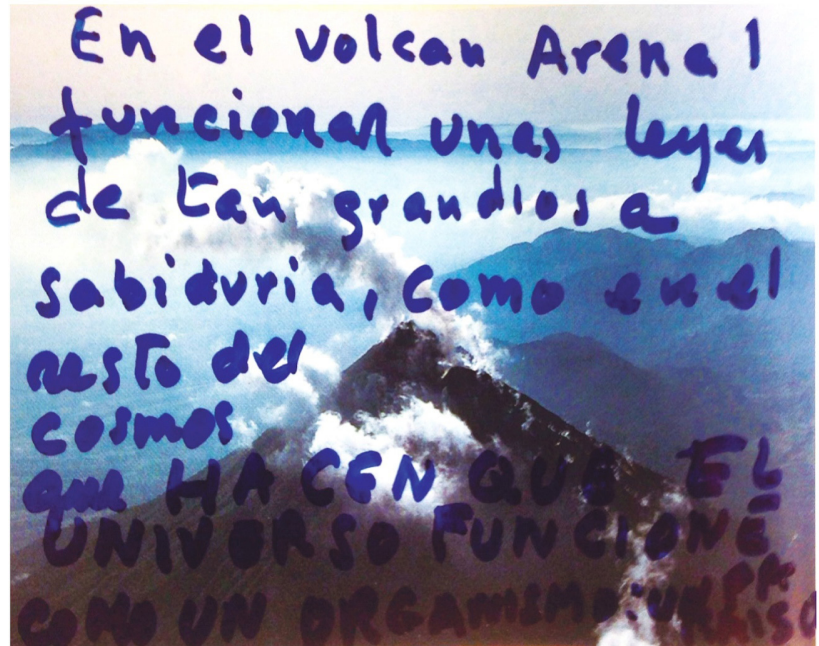 En el volcan Arenal
funcionan unas leyes
de tan grandiosa
sabiduria, como en el
resto del
cosmos
que HACEN QUE EL
UNIVERSO FUNCIONE
COMO UN ORGANISMO: UN PARAISO